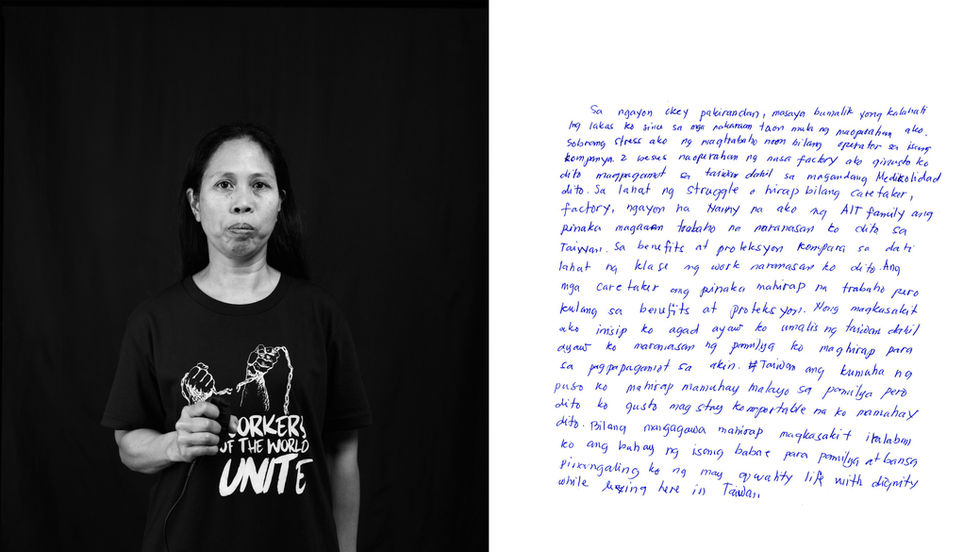 WORKERS
OF THE WORLD
UNITE
Sa ngayon okey pakiramdam, masaya bumalik yong kalahati
ng lakas ko simu sa mga nakaraan taon mula ng naoperahan ako.
Sobrang stress ako ng nagtrabaho noon bilang operator sa isang
kompanya. 2 beses naoperahan ng nasa factory ako ginusto ko
dito magpagamot sa taiwan dahil sa magandang Medikolidad
dito. Sa lahat ng struggle o hirap bilang caretaker,
factory, ngayon na Nanny na ako ng AIT family ang
pinaka magaan trabaho na naranasan ko dito sa
Taiwan. Sa benefits at proteksyon kompara sa dati
lahat ng klase ng work naranasan ko dito. Ang
mga caretaker ang pinaka mahirap na trabaho pero
kulang sa benefits at proteksyon. Nong magkasakit
ako inisip ko agad ayaw ko umalis ng taiwan dahil
ayaw ko maranasan ng pamilya ko maghirap para
sa pagpapagamot sa akin. #Taiwan ang kumuha ng
puso ko mahirap mamuhay malayo sa pamilya pero
dito ko gusto mag stay komportable na ko namuhay
dito. Bilang mangagawa mahirap magkasakit ilalaban
ko ang buhay ng isang babae para pamilya at bansa
pinangaling ko ng may quality life with dignity
while living here in Taiwan